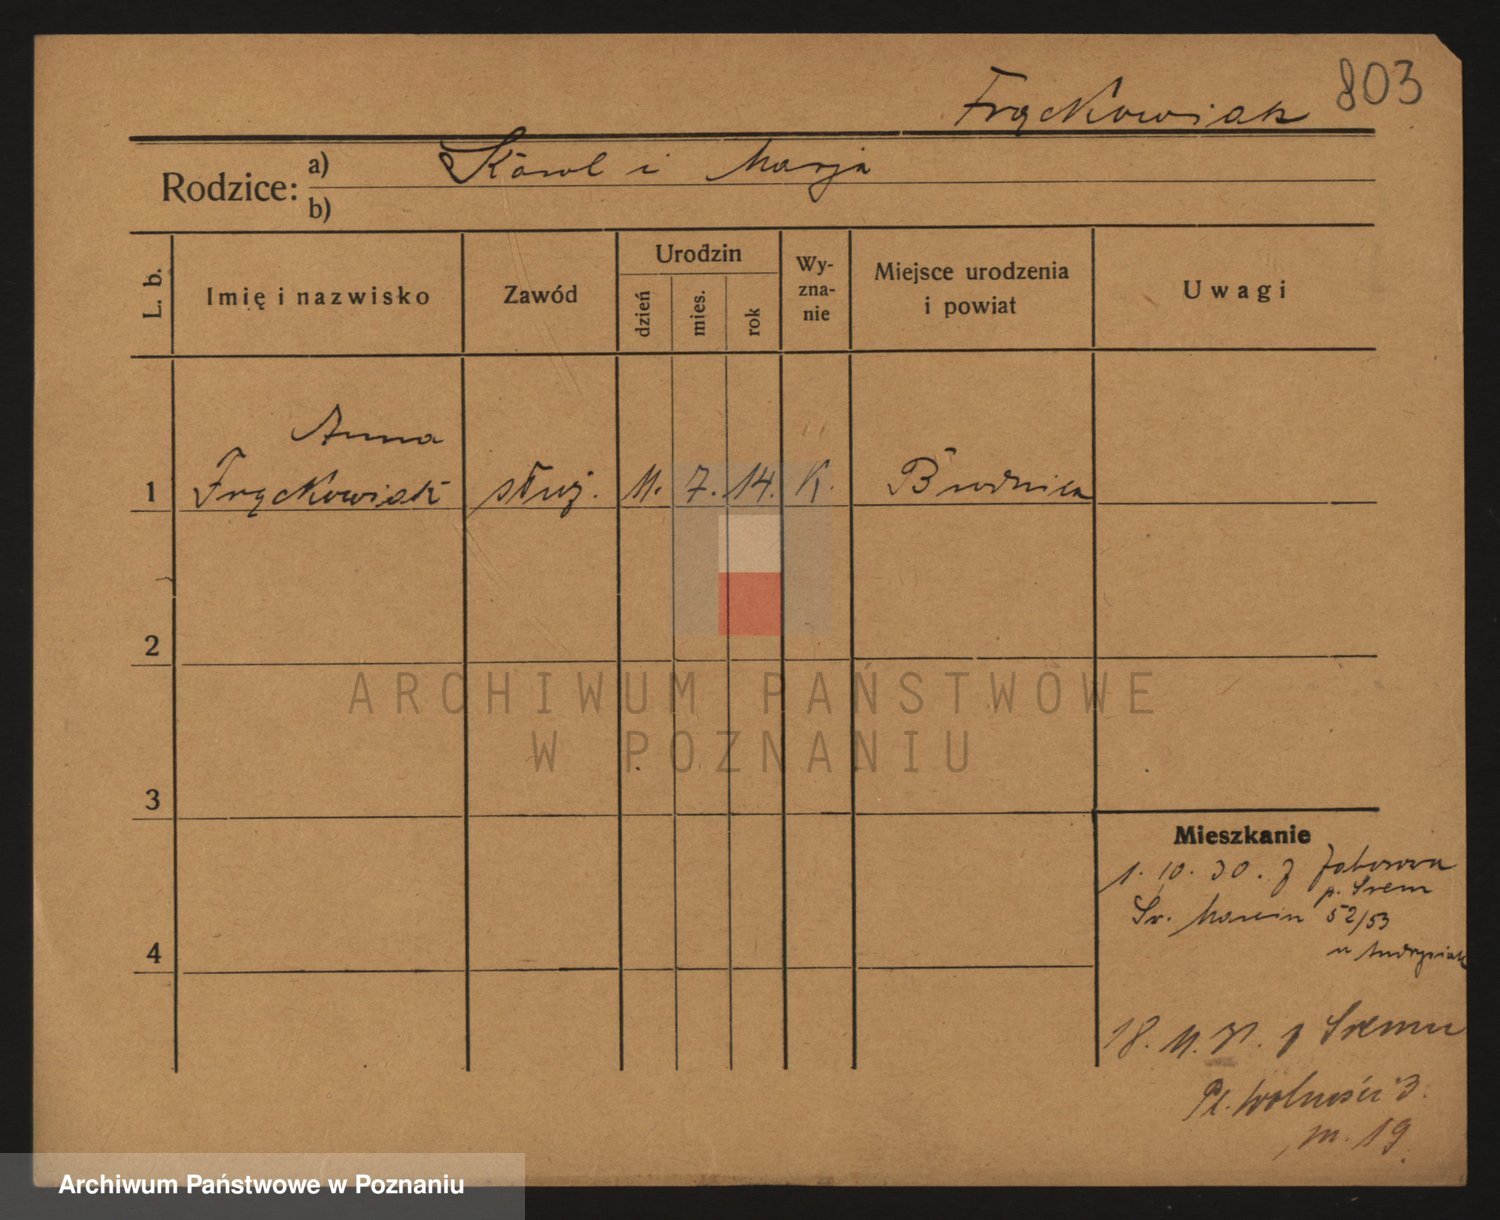 803
Frąckowiak
Rodzice: a) Karol i Marja
b)
L. b.
Imię i nazwisko
Zawód
Urodzin
dzień
mies.
rok
Wy-
zna-
nie
Miejsce urodzenia
i powiat
Uwagi
Anna
1 Frąckowiak służ. 11. 7. 14. K. Brodnica
2
ARCHIWUM PAŃSTWOWE
W POZNANIU
3
Mieszkanie
1. 10. 30. z
p. Śrem
Św. Marcin 52/53
4
u Andrzejak
18. 11. 31. z Śremu
Pl. Wolności 3.
m. 19.
Archiwum Państwowe w Poznaniu